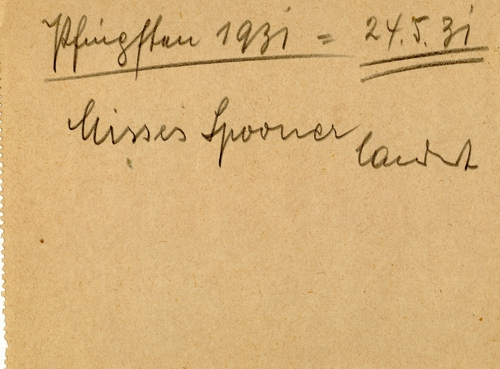 Pfingsten 1931 = 24.5.31
Misses Spooner landet